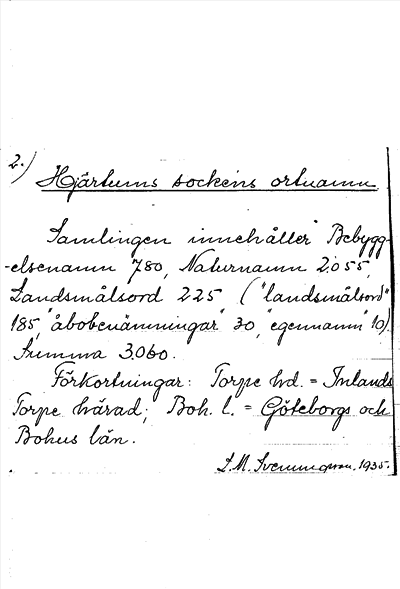 2.)
Hjärtums sockens ortnamn
Samlingen innehåller Bebygg-
-elsenamn 780, Naturnamn 2055,
Landsmålsord 225 ("landsmålsord"
185, "åbobenämningar" 30, "egennamn" 10)
Summa 3060.
Förkortningar: Torpe hd. = Inlands
Torpe härad; Boh. l. = Göteborgs och
Bohus län.
L.M. Svenungsson. 1935.